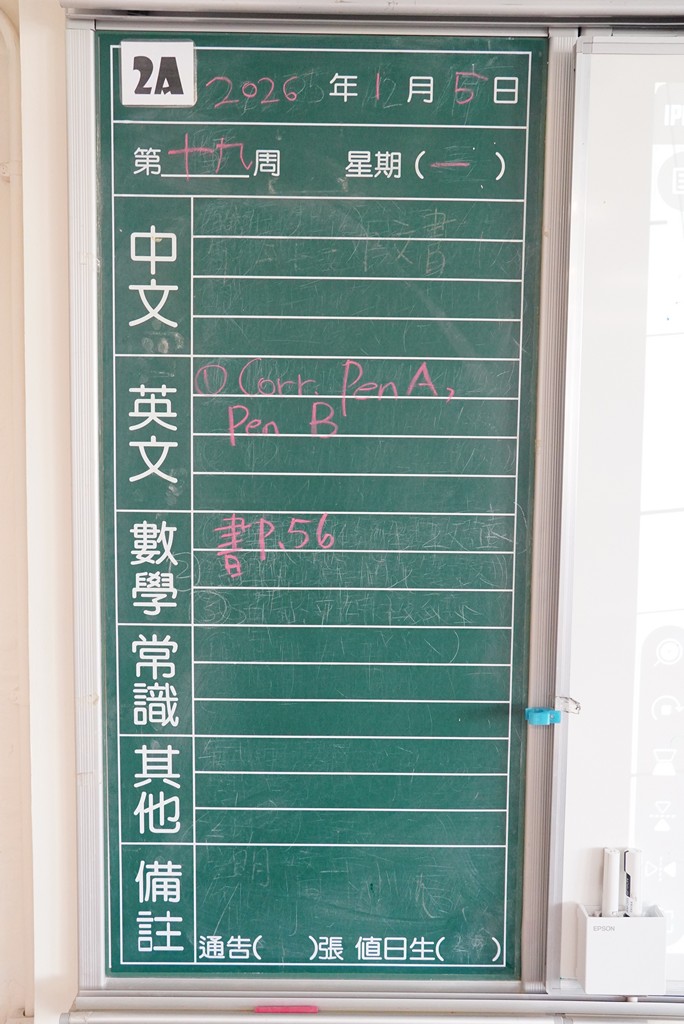 2A
2026年1月5日
第十九周 星期(一)
中文
英文
① Corr. Pen A,
Pen B
數學
書P.56
常識
其他
備註
通告( )張 值日生( )
EPSON